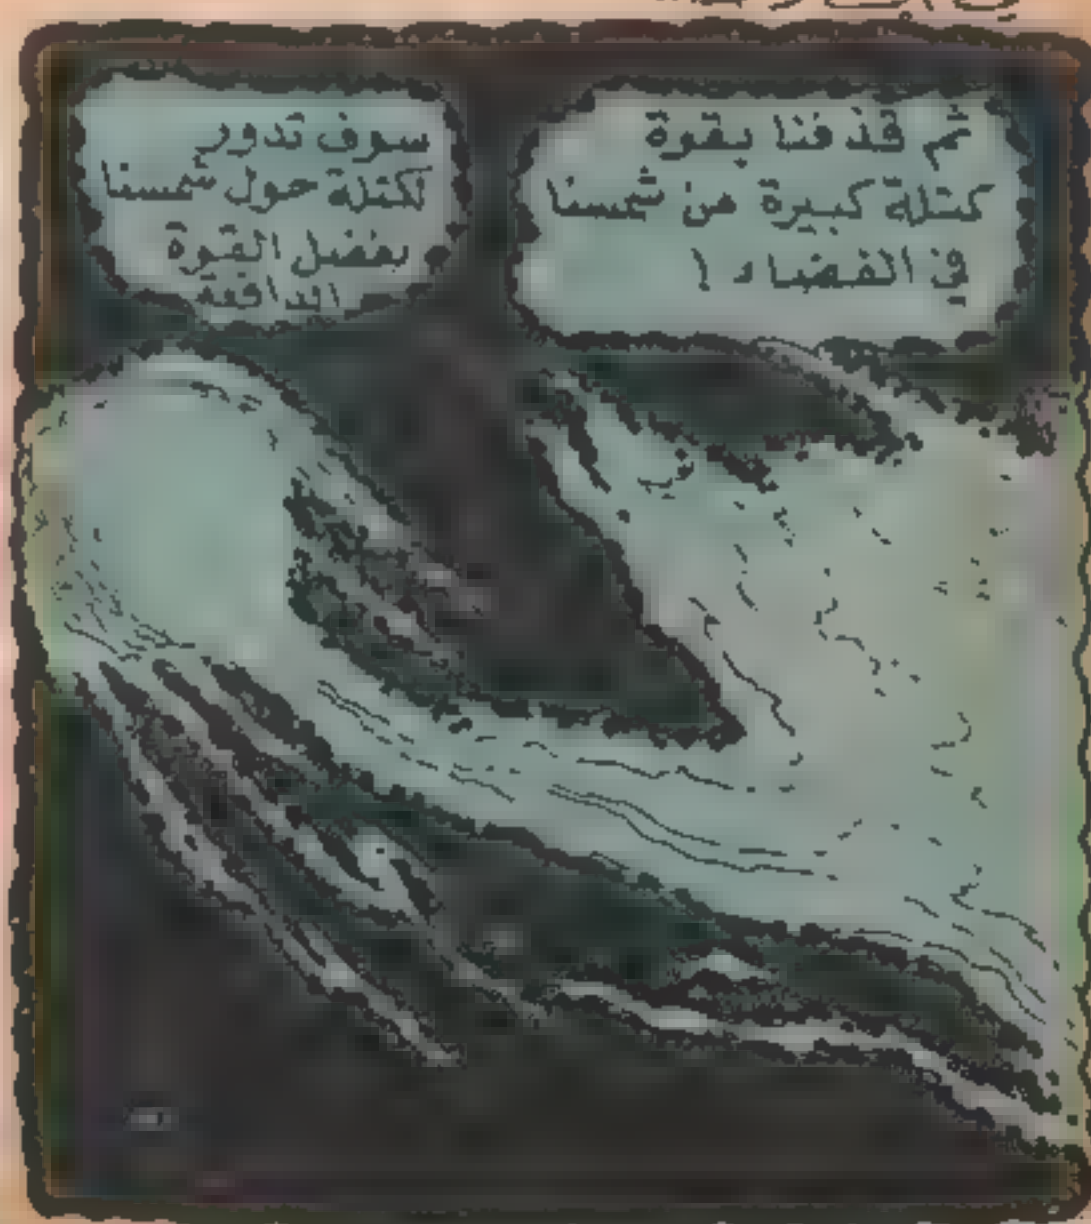 ثم قذفنا بقوة
كتلة كبيرة من شمسنا
في الفضاء !
سوف تدور
الكتلة حول شمسنا
بفضل القوة
الدافعة